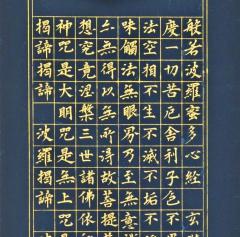 般若波羅蜜多心經 玄
度一切苦厄舍利子色不
法空相不生不滅不垢不
味觸法無眼界乃至無
亦無得以無所得故菩提
想究竟涅槃三世諸佛依
神咒是大明咒是無上咒
揭諦揭諦 波羅揭諦